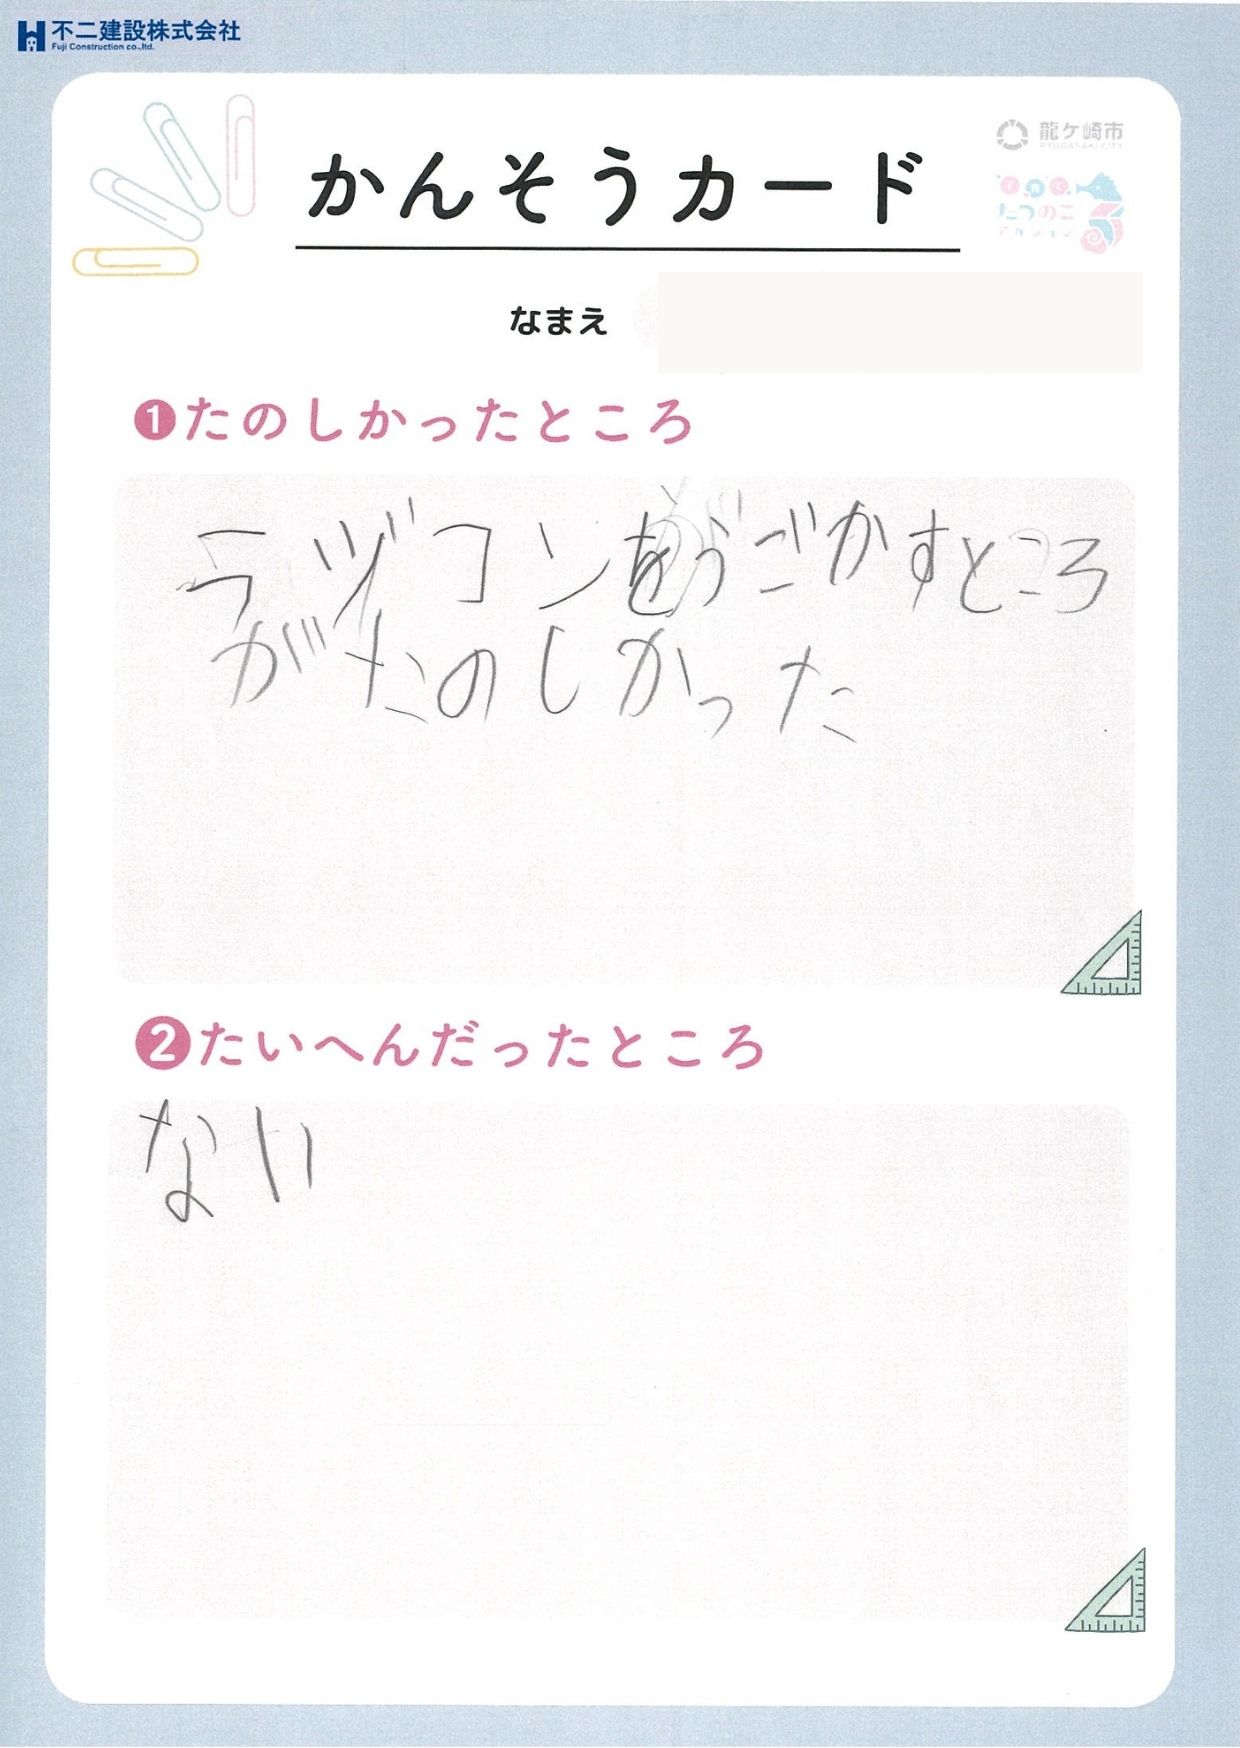 不二建設株式会社
Fuji Construction co.,ltd.
龍ケ崎市
RYUGASAKI CITY
かんそうカード
たつのこ
アクション
なまえ
❶たのしかったところ
ラヅコンをうごかすところ
がたのしかった
❷たいへんだったところ
ない